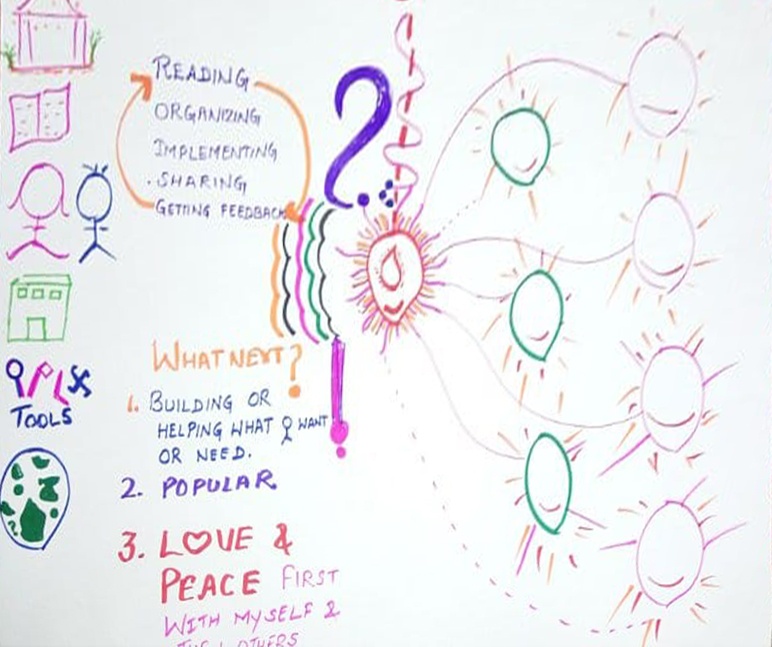 READING
ORGANIZING
IMPLEMENTING
. SHARING
GETTING FEEDBACK
?
WHAT NEXT?
1. BUILDING OR
HELPING WHAT WANT
OR NEED.
TOOLS
2. POPULAR
3. LOVE &
PEACE FIRST
WITH MYSELF &
OTHERS